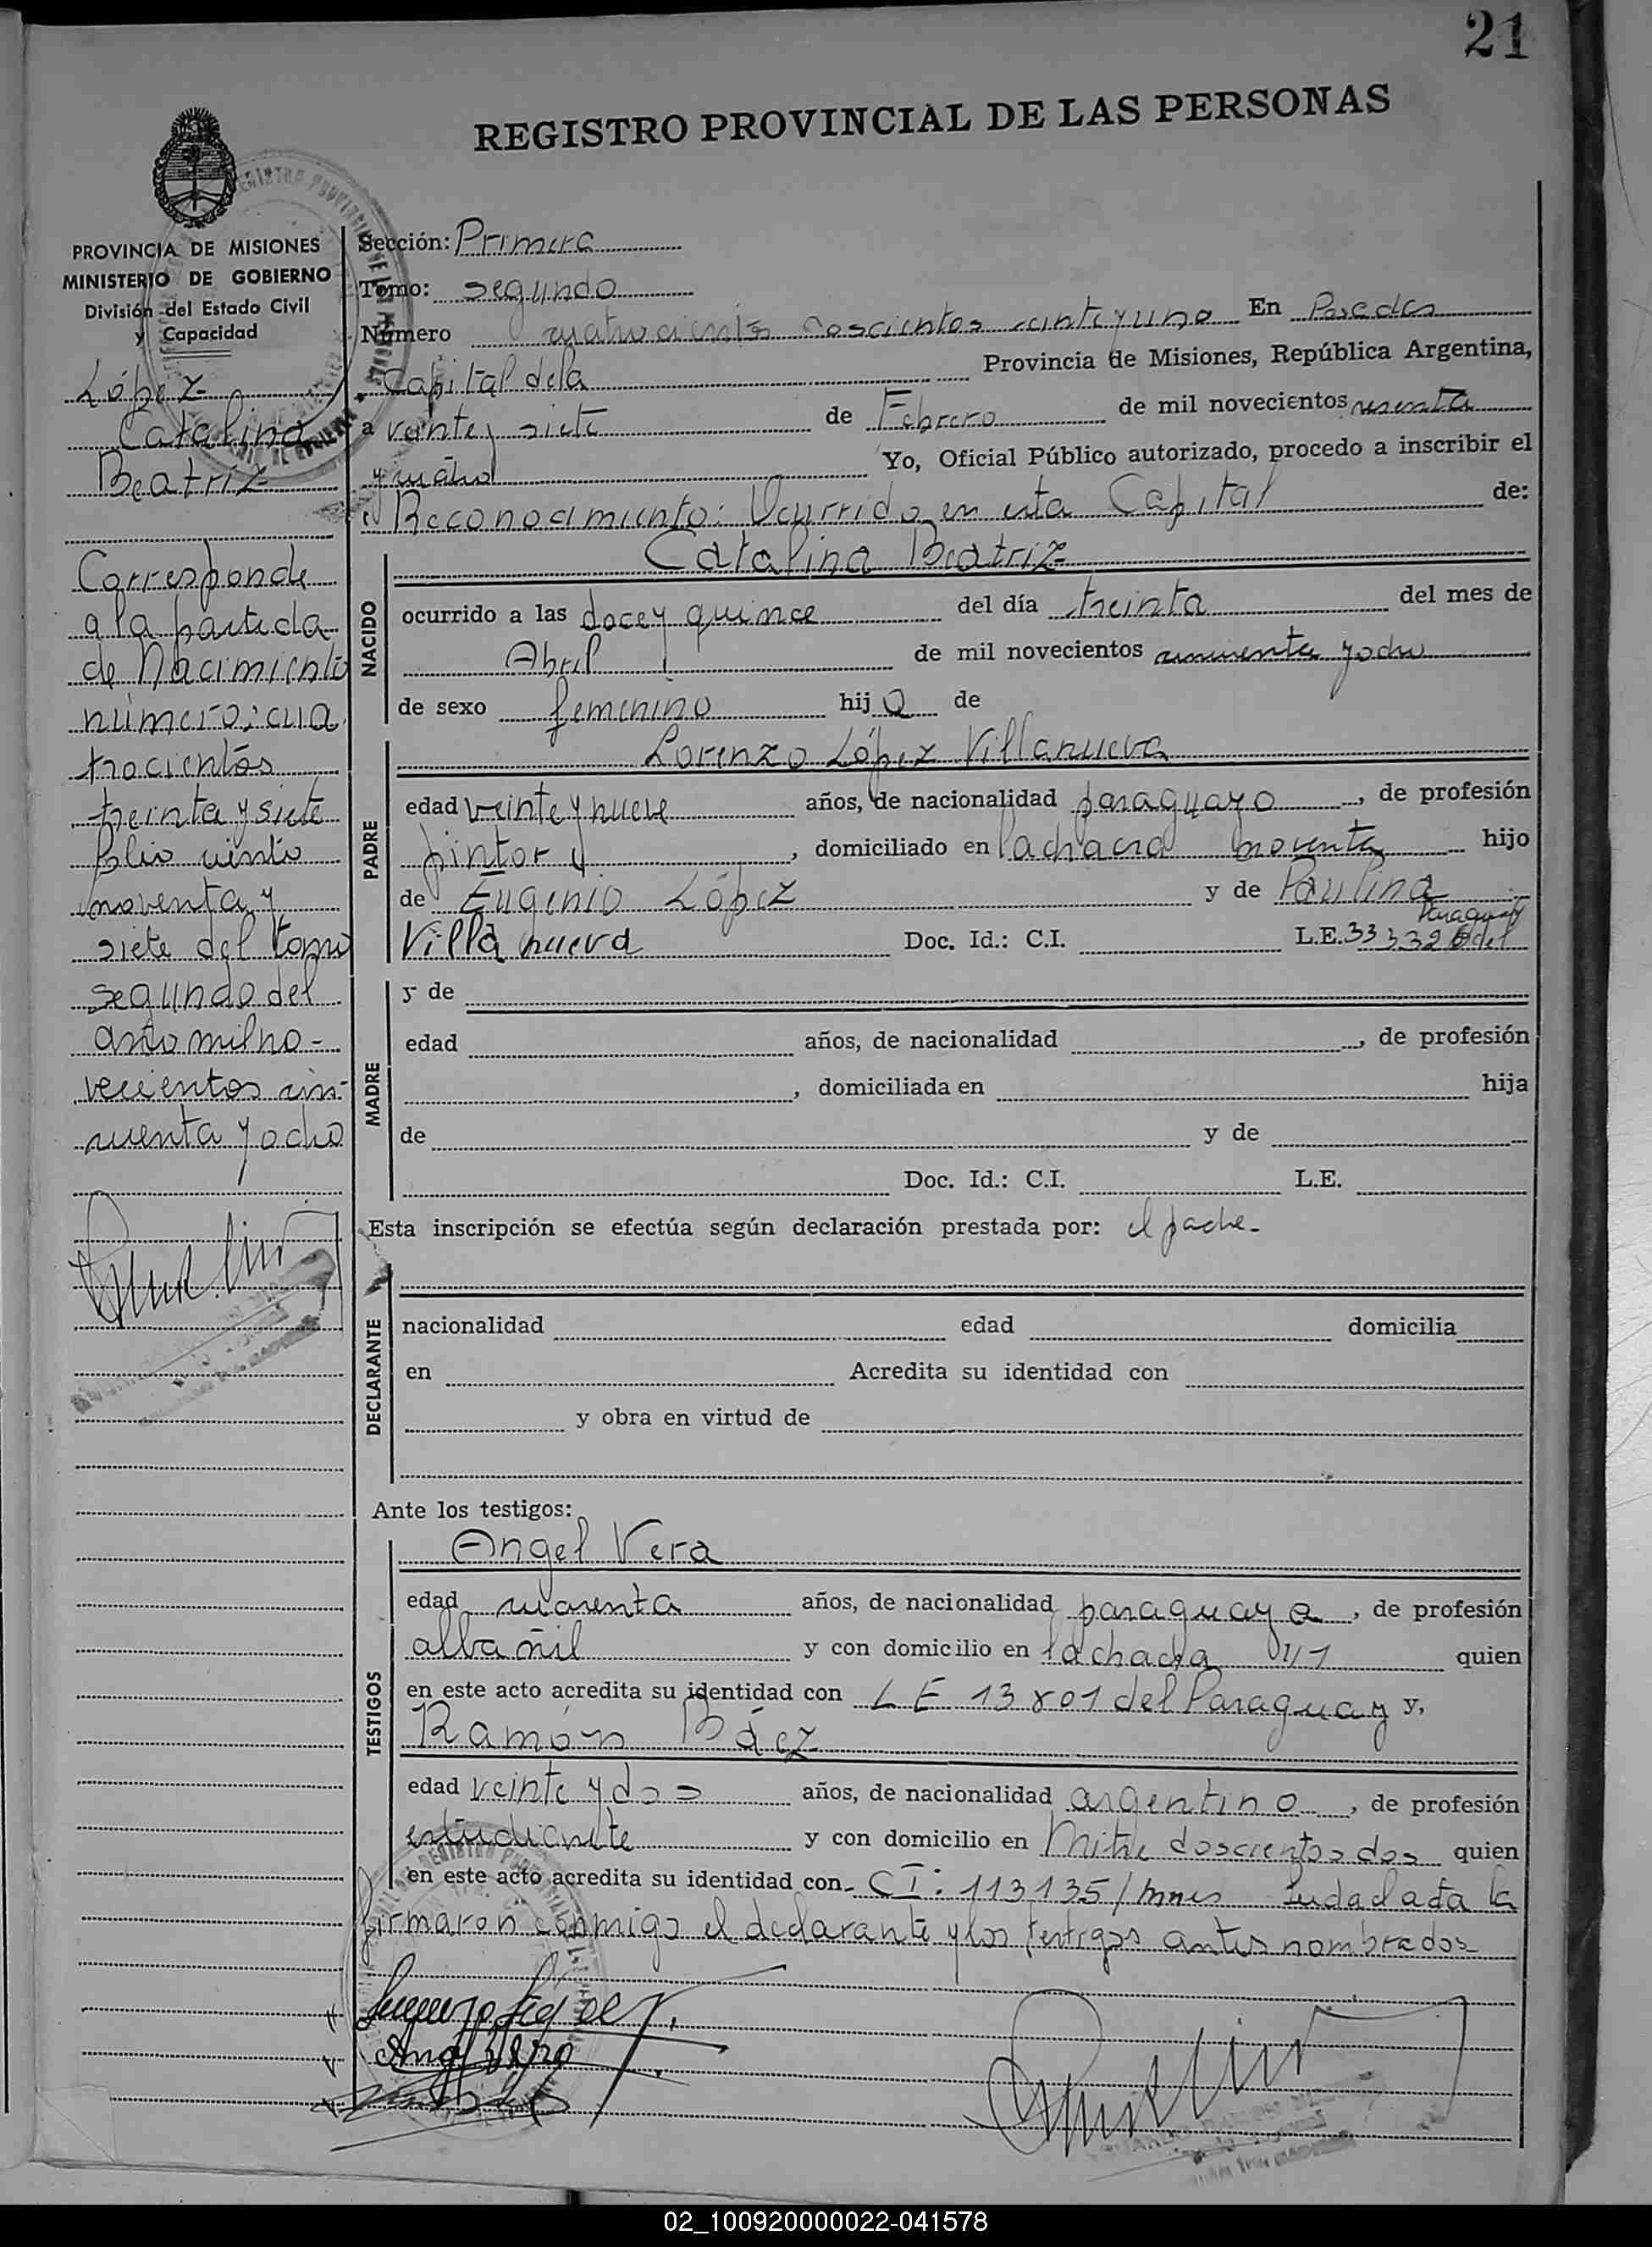 21
REGISTRO PROVINCIAL DE LAS PERSONAS
PROVINCIA DE MISIONES
MINISTERIO DE GOBIERNO
División del Estado Civil
y Capacidad
López
Catalina
Beatriz
Corresponde
a la partida
de Nacimiento
número: cua
trocientos
treinta y siete
folio ciento
noventa y
siete del tomo
segundo del
año mil no-
vecientos cin-
cuenta y ocho
Sección: Primera
Tomo: segundo
Número doscientos En Posadas
Capital de la Provincia de Misiones, República Argentina,
a veinte y siete de Febrero de mil novecientos sesenta
y cuatro Yo, Oficial Público autorizado, procedo a inscribir el
Reconocimiento: Ocurrido en esta Capital de:
NACIDO
Catalina Beatriz
ocurrido a las doce y quince del día treinta del mes de
Abril de mil novecientos cincuenta y ocho
de sexo femenino hija de
PADRE
Lorenzo López Villanueva
edad veinte y nueve años, de nacionalidad paraguayo, de profesión
pintor, domiciliado en la chacra noventa hijo
de Eugenio López y de Paulina
Villanueva Doc. Id.: C.I. L.E. 333326 del Paraguay
MADRE
y de
edad años, de nacionalidad , de profesión
, domiciliada en hija
de y de
Doc. Id.: C.I. L.E.
Esta inscripción se efectúa según declaración prestada por: el padre.-
DECLARANTE
nacionalidad edad domicilia
en Acredita su identidad con
y obra en virtud de
Ante los testigos:
TESTIGOS
Angel Vera
edad cuarenta años, de nacionalidad paraguaya, de profesión
albañil y con domicilio en la chacra quien
en este acto acredita su identidad con LE 13801 del Paraguay y,
Ramón Báez
edad veinte y dos años, de nacionalidad argentino, de profesión
estudiante y con domicilio en Mitre doscientos dos quien
en este acto acredita su identidad con CI: 113135/mnes la
firmaron conmigo el declarante y los testigos antes nombrados
02_100920000022-041578